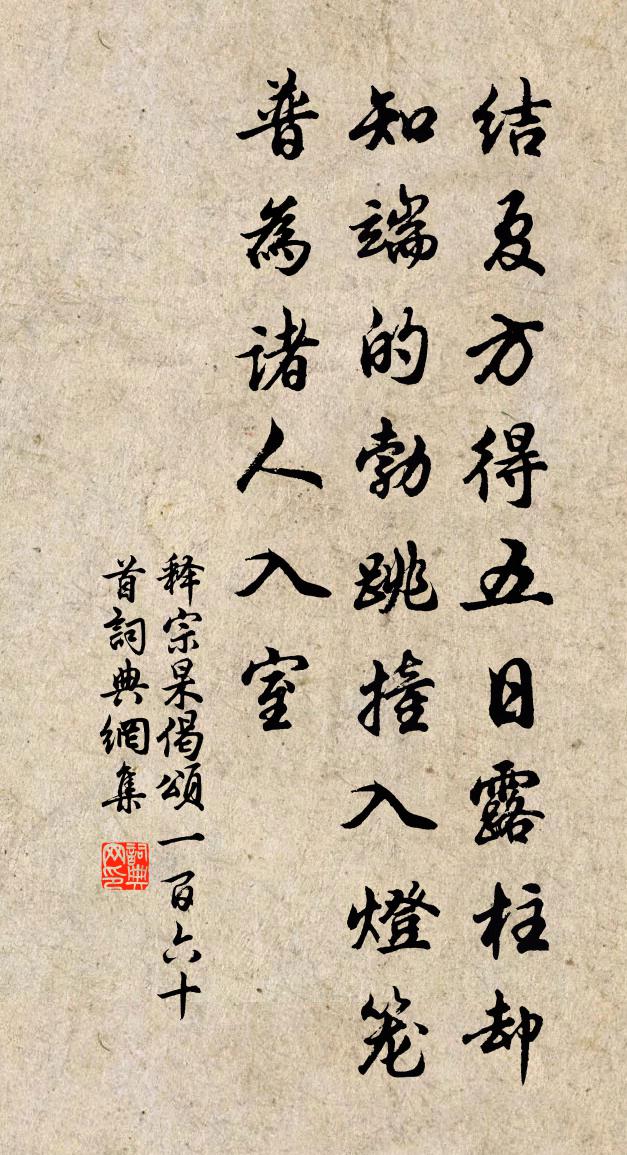 结夏方得五日露柱却
知端的勃跳撞入燈笼
普為诸人入室
释宗杲偈頌一百六十
首詞典網集
詞典网印